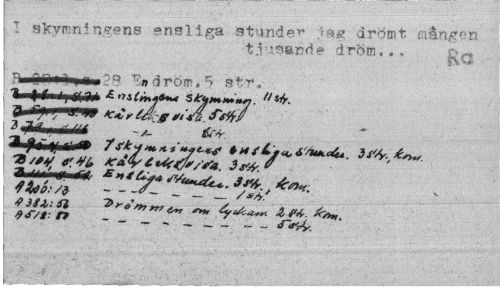 I skymningens ensliga stunder jag drömt mången
tjusande dröm...
Ra
28 En dröm. 5 str.
Enslingens skymning. 11 str.
Kärleksvisa 5 str.
-"- 8 str.
I skymningens ensliga stunder. 3 str, kom.
B 104, s. 46 Kärleksvisa. 3 str.
Ensliga stunder. 3 str, kom.
A 200:13 - - - - - - - 1 str.
A 382:50 Drömmen om lyckan 2 str. kom.
A 518: - - - - - - - 5 str.